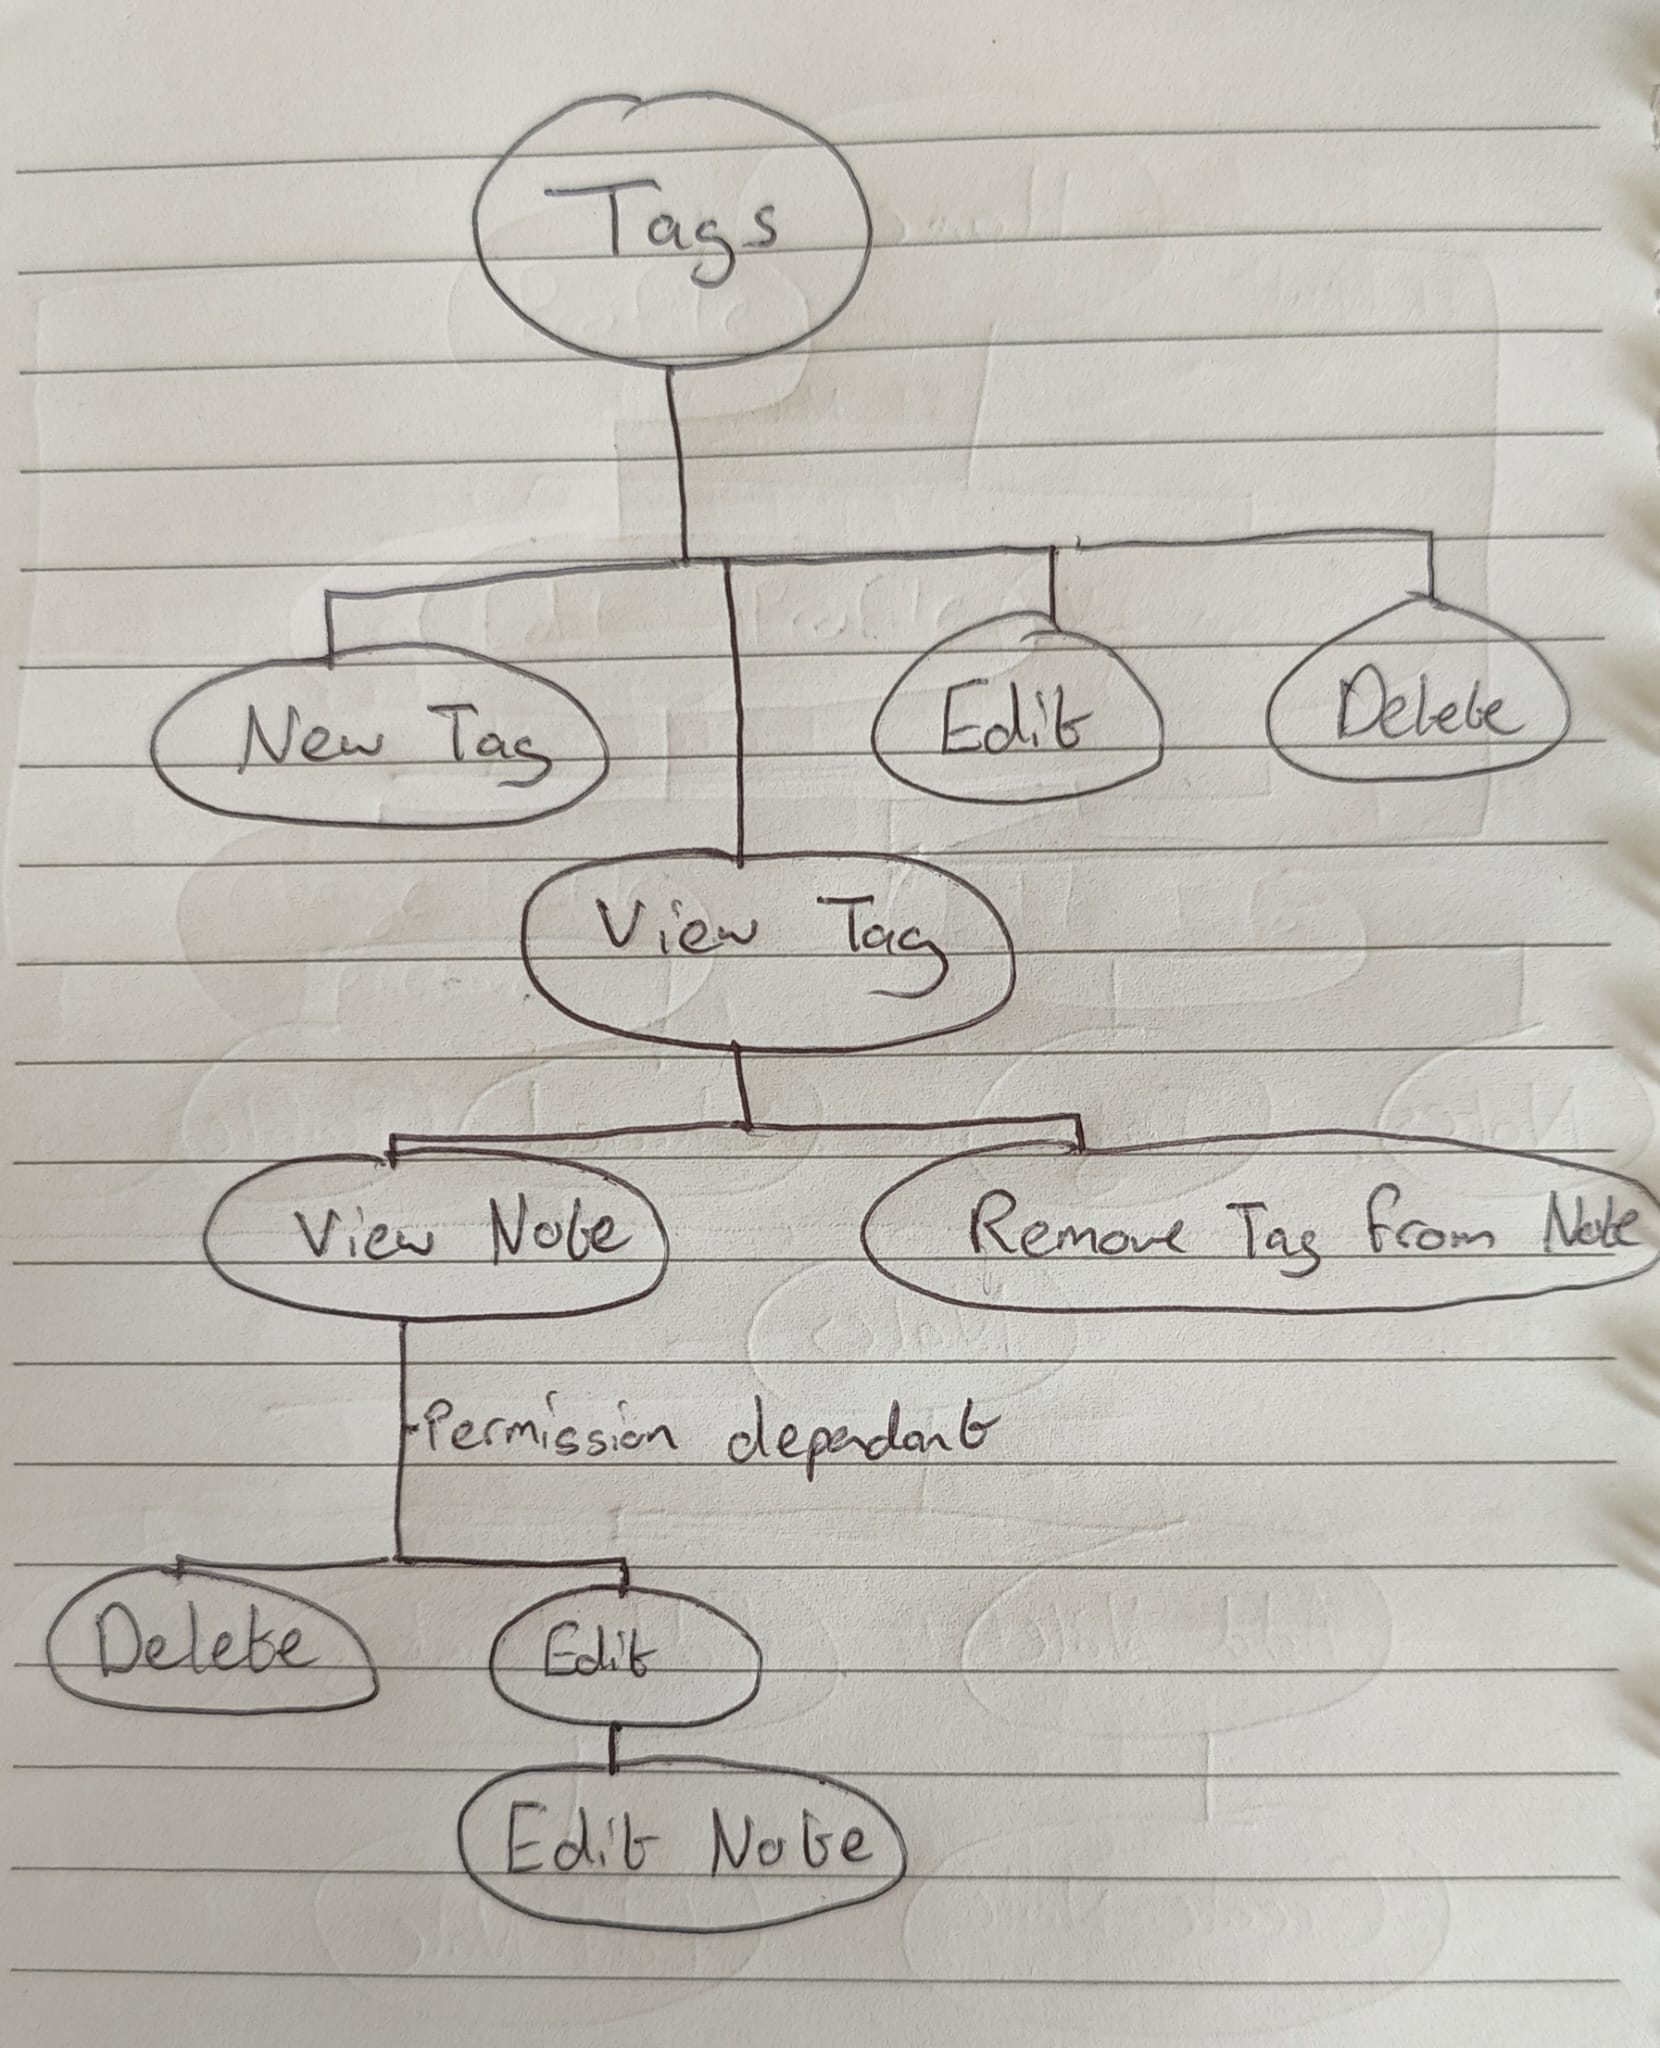 Tags
New Tag
Edit
Delete
View Tag
View Note
Remove Tag from Note
Permission dependant
Delete
Edit
Edit Note